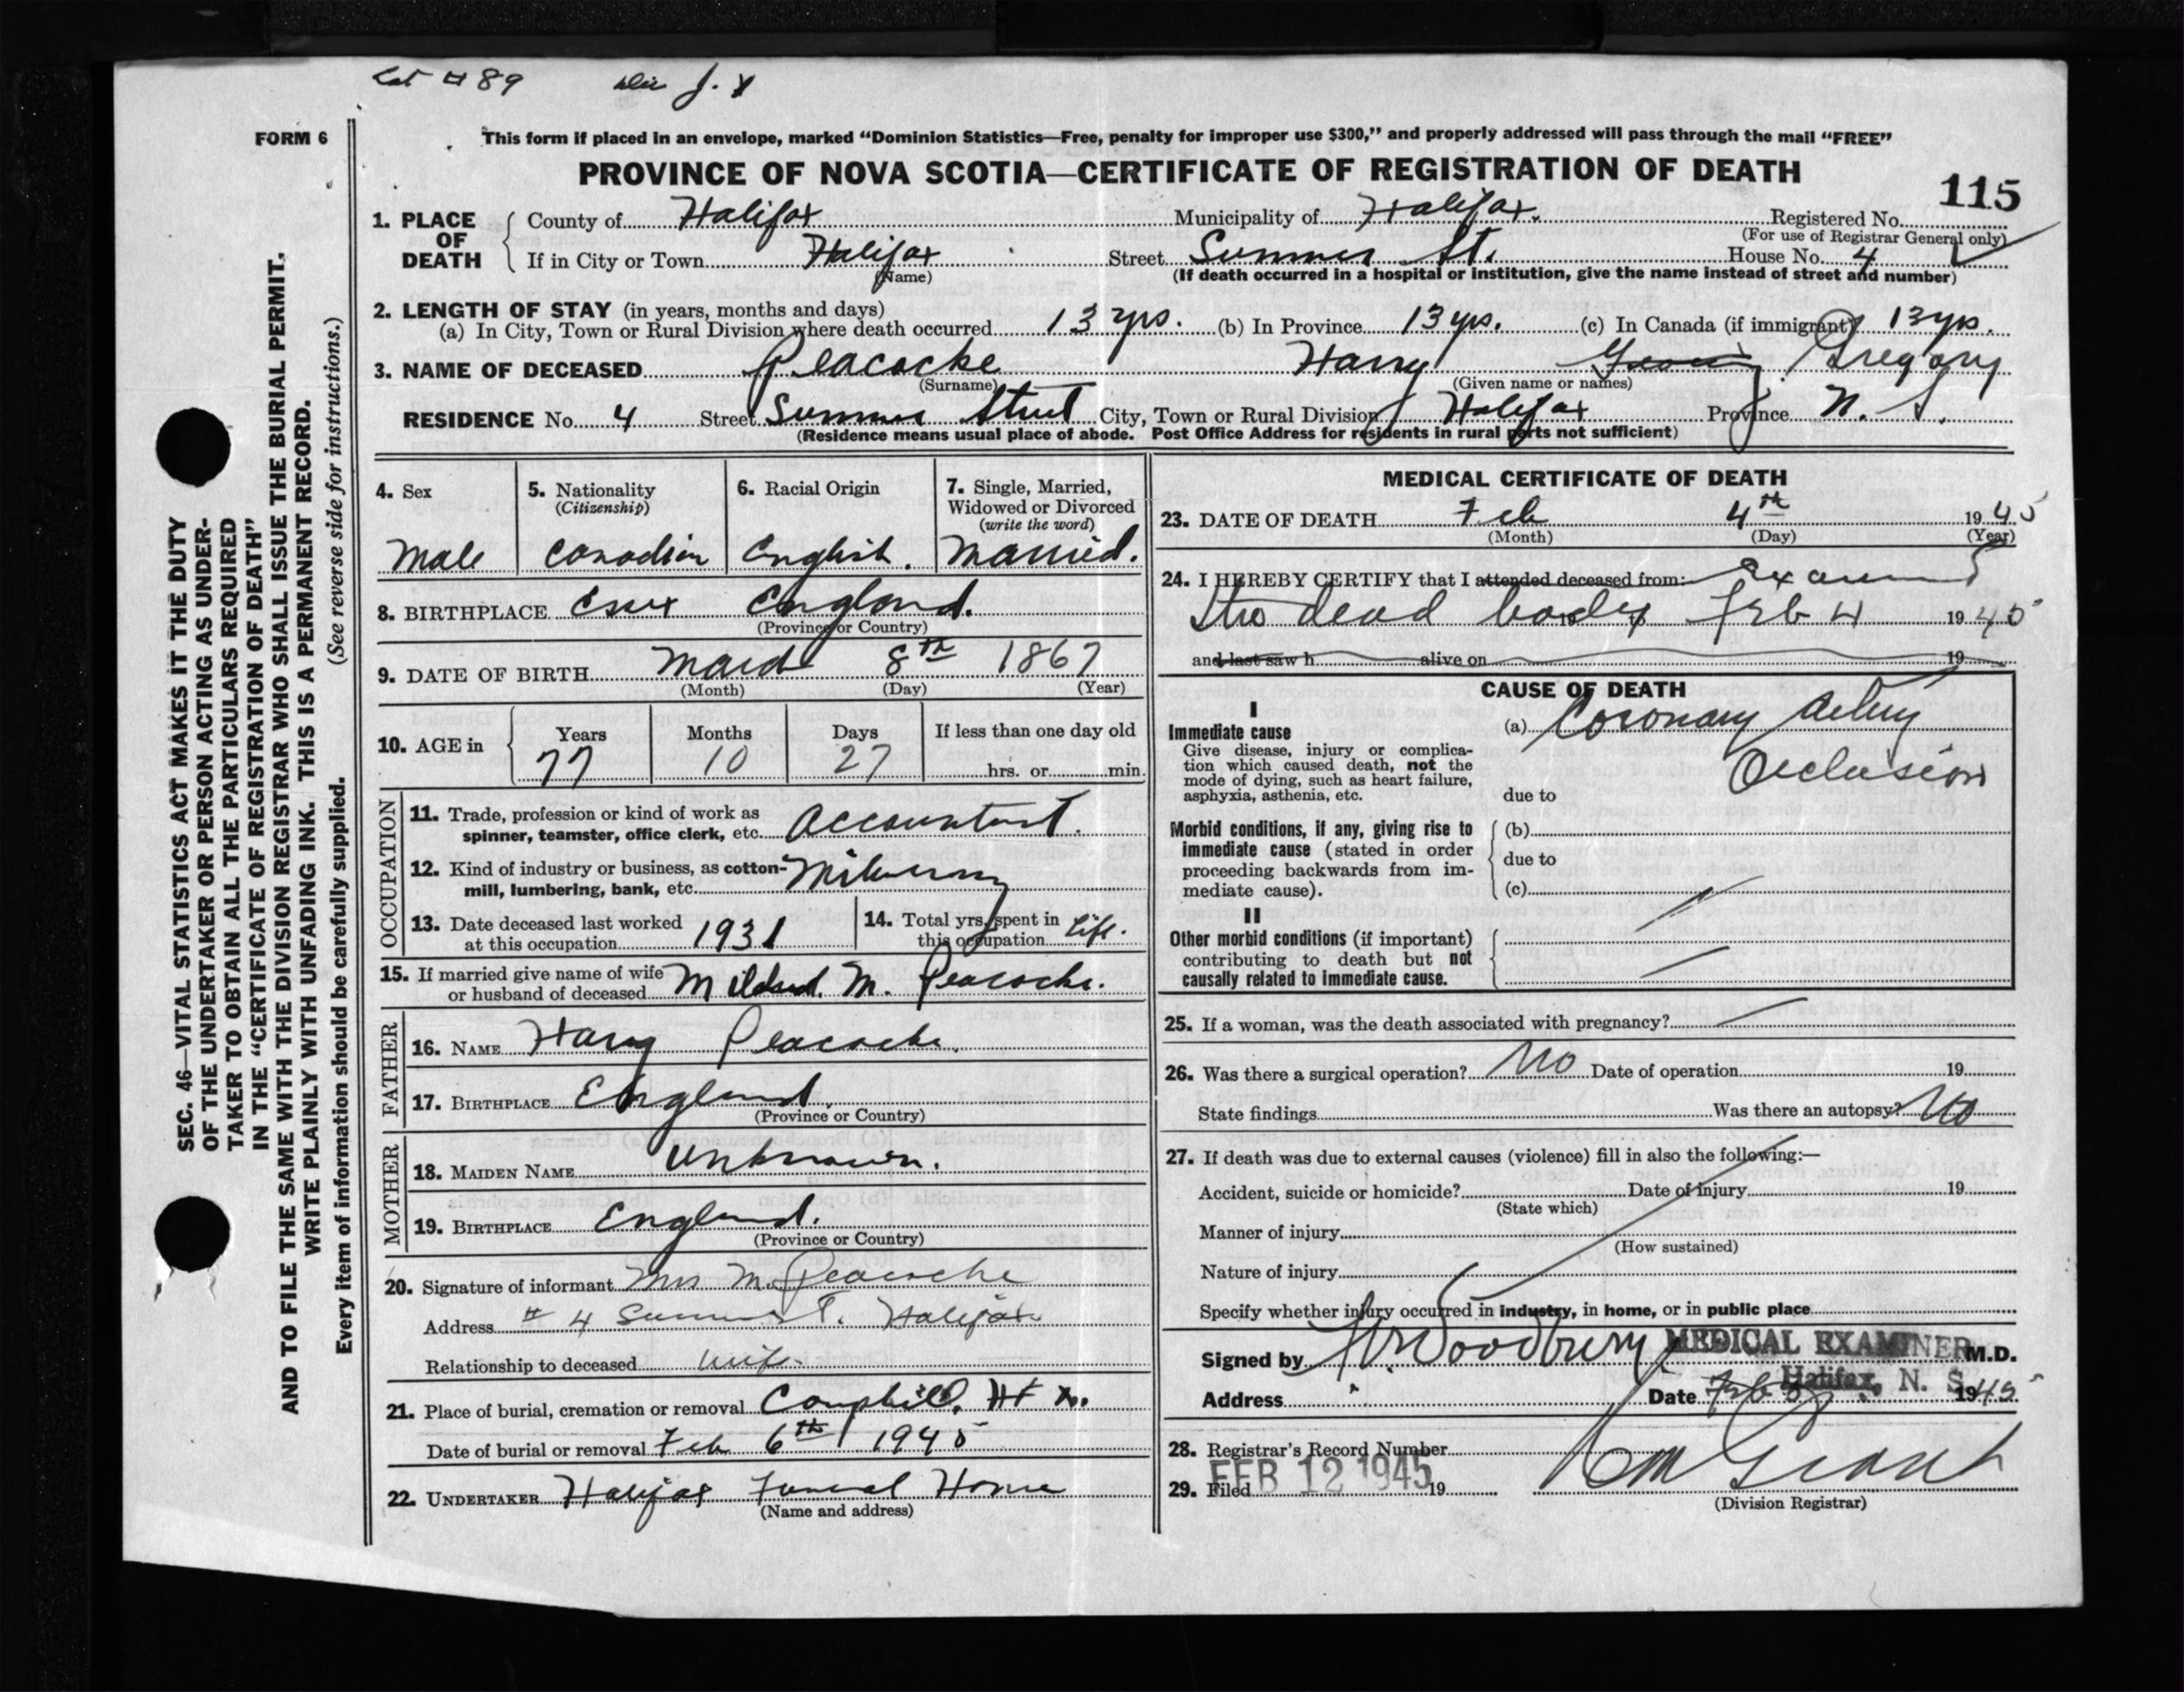 Lot # 89
FORM 6
This form if placed in an envelope, marked "Dominion Statistics—Free, penalty for improper use $300," and properly addressed will pass through the mail "FREE"
PROVINCE OF NOVA SCOTIA—CERTIFICATE OF REGISTRATION OF DEATH
115
1. PLACE OF DEATH
County of Halifax Municipality of Halifax. Registered No.
(For use of Registrar General only)
If in City or Town Halifax Street Summer St. House No. 4
(Name)
(If death occurred in a hospital or institution, give the name instead of street and number)
2. LENGTH OF STAY (in years, months and days)
(a) In City, Town or Rural Division where death occurred 13 yrs. (b) In Province 13 yrs. (c) In Canada (if immigrant) 13 yrs.
3. NAME OF DECEASED Peacocke Harry Gregory
(Surname) (Given name or names)
RESIDENCE No. 4 Street Summer Street City, Town or Rural Division Halifax Province N. S.
(Residence means usual place of abode. Post Office Address for residents in rural parts not sufficient)
4. Sex
Male
5. Nationality
(Citizenship)
Canadian
6. Racial Origin
English.
7. Single, Married,
Widowed or Divorced
(write the word)
Married.
8. BIRTHPLACE Essex England.
(Province or Country)
9. DATE OF BIRTH March 8th 1867
(Month) (Day) (Year)
10. AGE in
Years Months Days If less than one day old
77 10 27 hrs. or min.
OCCUPATION
11. Trade, profession or kind of work as
spinner, teamster, office clerk, etc. Accountant.
12. Kind of industry or business, as cotton-
mill, lumbering, bank, etc.
13. Date deceased last worked
at this occupation 1931
14. Total yrs. spent in
this occupation Life.
15. If married give name of wife
or husband of deceased Mildred. M. Peacocke.
FATHER
16. NAME Harry Peacocke.
17. BIRTHPLACE England.
(Province or Country)
MOTHER
18. MAIDEN NAME Unknown.
19. BIRTHPLACE England.
(Province or Country)
20. Signature of informant Mrs M. Peacocke
Address # 4 Summer St. Halifax
Relationship to deceased wife
21. Place of burial, cremation or removal Camphill, Hfx.
Date of burial or removal Feb 6th 1945
22. UNDERTAKER Halifax Funeral Home
(Name and address)
MEDICAL CERTIFICATE OF DEATH
23. DATE OF DEATH Feb 4th 1945
(Month) (Day) (Year)
24. I HEREBY CERTIFY that I attended deceased from: examined
the dead body Feb 4 1945
and last saw h alive on 19
CAUSE OF DEATH
I
Immediate cause
Give disease, injury or complica-
tion which caused death, not the
mode of dying, such as heart failure,
asphyxia, asthenia, etc.
(a) Coronary Artery
Occlusion
due to
Morbid conditions, if any, giving rise to
immediate cause (stated in order
proceeding backwards from im-
mediate cause).
(b)
due to
(c)
II
Other morbid conditions (if important)
contributing to death but not
causally related to immediate cause.
25. If a woman, was the death associated with pregnancy?
26. Was there a surgical operation? No Date of operation 19
State findings Was there an autopsy? No
27. If death was due to external causes (violence) fill in also the following:—
Accident, suicide or homicide? Date of injury 19
(State which)
Manner of injury
(How sustained)
Nature of injury
Specify whether injury occurred in industry, in home, or in public place
Signed by Woodbury MEDICAL EXAMINER M.D.
Halifax, N. S.
Address Date Feb 1945
28. Registrar's Record Number
29. Filed FEB 12 1945 19
Grant
(Division Registrar)
SEC. 46—VITAL STATISTICS ACT MAKES IT THE DUTY
OF THE UNDERTAKER OR PERSON ACTING AS UNDER-
TAKER TO OBTAIN ALL THE PARTICULARS REQUIRED
IN THE "CERTIFICATE OF REGISTRATION OF DEATH"
AND TO FILE THE SAME WITH THE DIVISION REGISTRAR WHO SHALL ISSUE THE BURIAL PERMIT.
WRITE PLAINLY WITH UNFADING INK. THIS IS A PERMANENT RECORD.
(See reverse side for instructions.)
Every item of information should be carefully supplied.